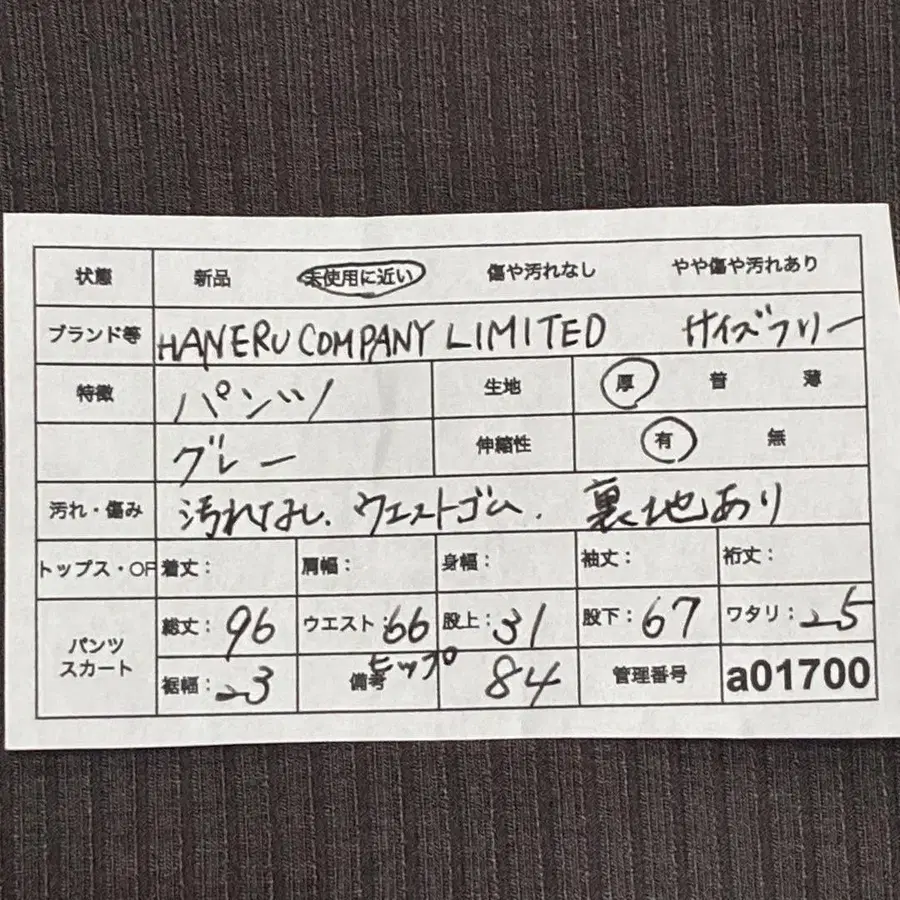 状態 新品 未使用に近い 傷や汚れなし やや傷や汚れあり
ブランド等 HANERU COMPANY LIMITED サイズフリー
特徴 パンツ 生地 厚 普 薄
グレー 伸縮性 有 無
汚れ・傷み 汚れなし、ウエストゴム、裏地あり
トップス・OP 着丈: 肩幅: 身幅: 袖丈: 裄丈:
パンツ スカート 総丈:96 ウエスト:66 股上:31 股下:67 ワタリ:25
裾幅:23 備考 ヒップ 84 管理番号 a01700